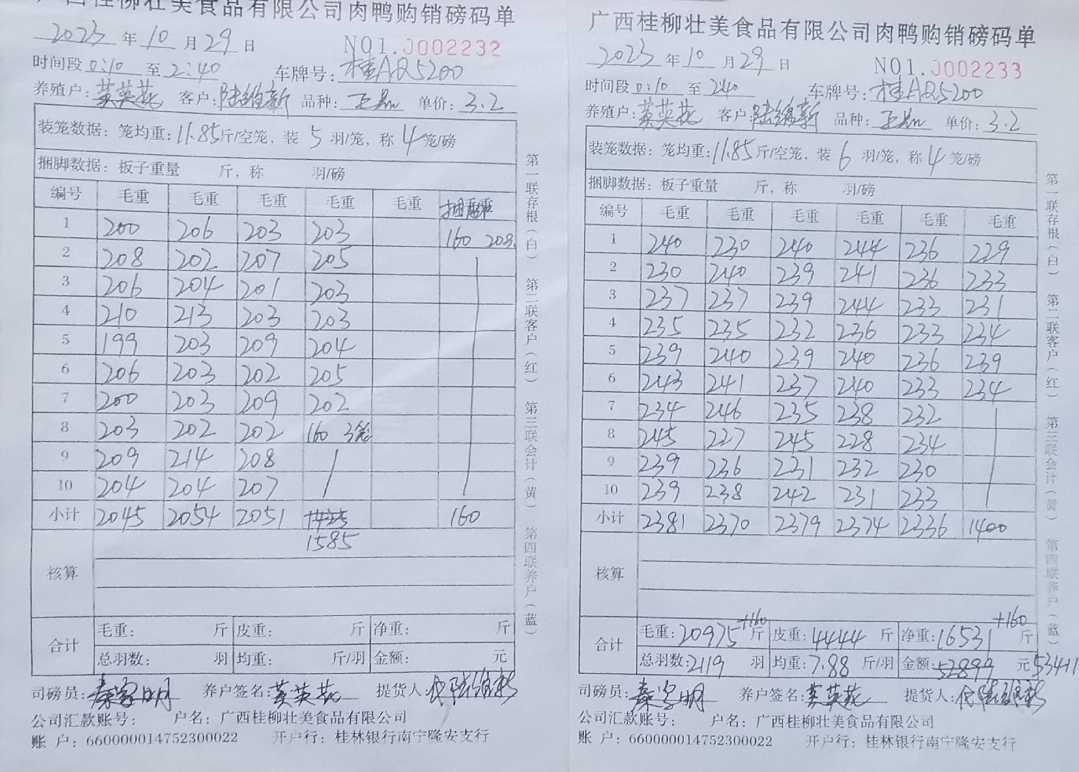 广西桂柳壮美食品有限公司肉鸭购销磅码单
2023年10月29日 NO1.J002232
时间段0:10至2:40 车牌号:桂AQ5200
养殖户:黄英花 客户:陆维新 品种: 单价:3.2
装笼数据:笼均重:11.85斤/空笼,装5羽/笼,称4笼/磅
捆脚数据:板子重量 斤,称 羽/磅
编号 毛重 毛重 毛重 毛重 毛重
1 200 206 203 203 160 20只
2 208 202 207 205
3 206 204 201 203
4 210 213 203 203
5 199 203 209 204
6 206 203 202 205
7 200 203 209 202
8 203 202 202 160 3笼
9 209 214 208
10 204 204 207
小计 2045 2054 2051 160
1585
核算
合计 毛重: 斤 皮重: 斤 净重: 斤
总羽数: 羽 均重: 斤/羽 金额: 元
司磅员:秦家明 养户签名:黄英花 提货人:代陆维新
公司汇款账号: 户名:广西桂柳壮美食品有限公司
账 户:660000014752300022 开户行:桂林银行南宁隆安支行
第一联存根(白) 第二联客户(红) 第三联会计(黄) 第四联养户(蓝)
广西桂柳壮美食品有限公司肉鸭购销磅码单
2023年10月29日 NO1.J002233
时间段0:10至240 车牌号:桂AQ5200
养殖户:黄英花 客户:陆维新 品种: 单价:3.2
装笼数据:笼均重:11.85斤/空笼,装6羽/笼,称4笼/磅
捆脚数据:板子重量 斤,称 羽/磅
编号 毛重 毛重 毛重 毛重 毛重 毛重
1 240 230 240 244 236 229
2 230 240 239 241 236 233
3 237 237 239 244 233 231
4 235 235 232 236 233 234
5 239 240 239 240 236 239
6 243 241 237 240 233 234
7 234 246 235 238 232
8 245 227 245 228 234
9 239 236 231 232 230
10 239 238 242 231 233
小计 2381 2370 2379 2374 2336 1400
核算
+160 +160
合计 毛重:20975斤 皮重:4444斤 净重:16531斤
总羽数:2119羽 均重:7.88斤/羽 金额:52899元 53411
司磅员:秦家明 养户签名:黄英花 提货人:代陆维新
公司汇款账号: 户名:广西桂柳壮美食品有限公司
账 户:660000014752300022 开户行:桂林银行南宁隆安支行
第一联存根(白) 第二联客户(红) 第三联会计(黄) 第四联养户(蓝)